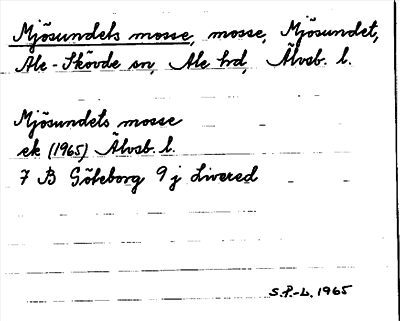 Mjösundets mosse, mosse, Mjösundet,
Ale-Skövde sn, Ale hd, Älvsb. l.
Mjösundets mosse
ek (1965) Älvsb. l.
7 B Göteborg 9 j Livered
S.P.-L. 1965